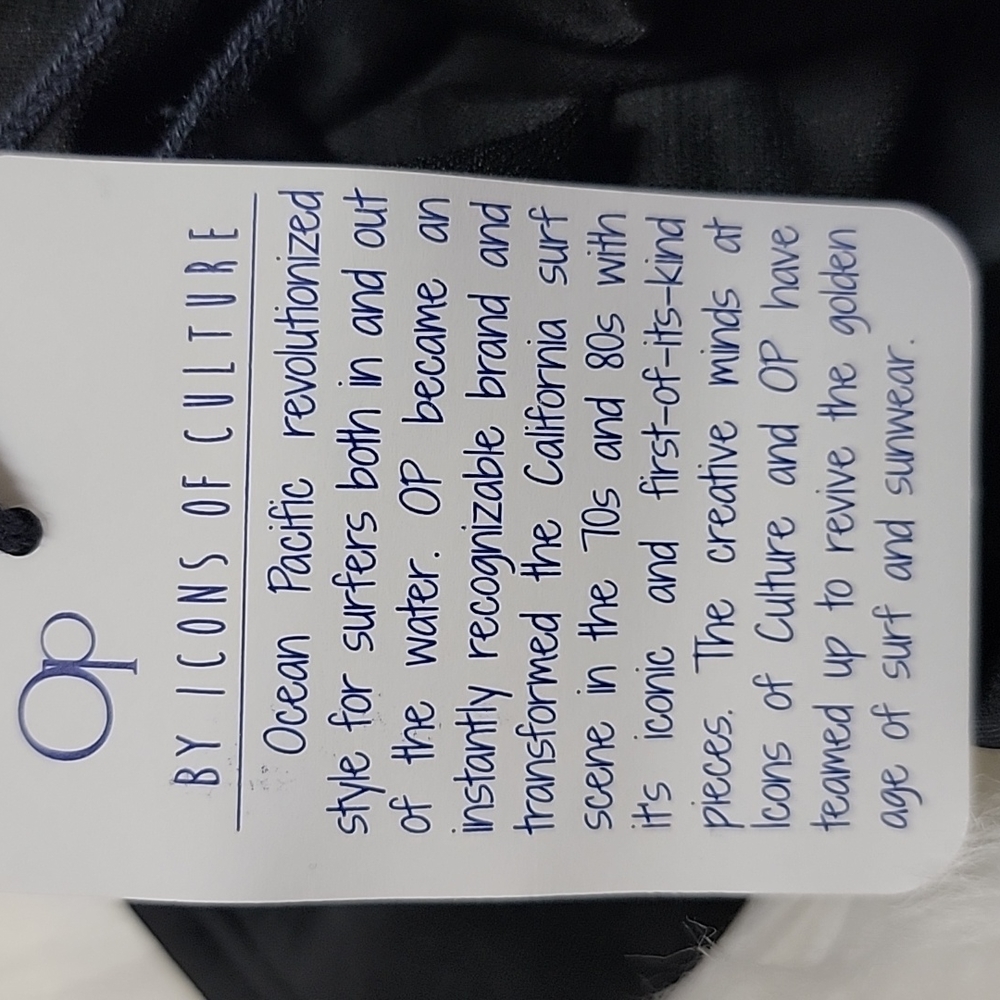 Op
BY ICONS OF CULTURE
Ocean Pacific revolutionized
style for surfers both in and out
of the water. OP became an
instantly recognizable brand and
transformed the California surf
scene in the 70s and 80s with
its iconic and first-of-its-kind
pieces. The creative minds at
Icons of Culture and OP have
teamed up to revive the golden
age of surf and sunwear.